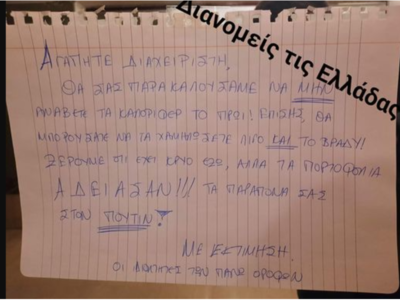 Διανομείς τις Ελλάδας
ΑΓΑΠΗΤΕ ΔΙΑΧΕΙΡΙΣΤΗ,
ΘΑ ΣΑΣ ΠΑΡΑΚΑΛΟΥΣΑΜΕ ΝΑ ΜΗΝ
ΑΝΑΒΕΤΕ ΤΑ ΚΑΛΟΡΙΦΕΡ ΤΟ ΠΡΩΙ! ΕΠΙΣΗΣ, ΘΑ
ΜΠΟΡΟΥΣΑΤΕ ΝΑ ΤΑ ΧΑΜΗΛΩΣΕΤΕ ΛΙΓΟ ΚΑΙ ΤΟ ΒΡΑΔΥ!
ΞΕΡΟΥΜΕ ΟΤΙ ΕΧΕΙ ΚΡΥΟ ΕΞΩ, ΑΛΛΑ ΤΑ ΠΟΡΤΟΦΟΛΙΑ
ΑΔΕΙΑΣΑΝ!!! ΤΑ ΠΑΡΑΠΟΝΑ ΣΑΣ
ΣΤΟΝ ΠΟΥΤΙΝ!
ΜΕ ΕΚΤΙΜΗΣΗ.
ΟΙ ΤΩΝ ΠΑΝΩ ΟΡΟΦΩΝ